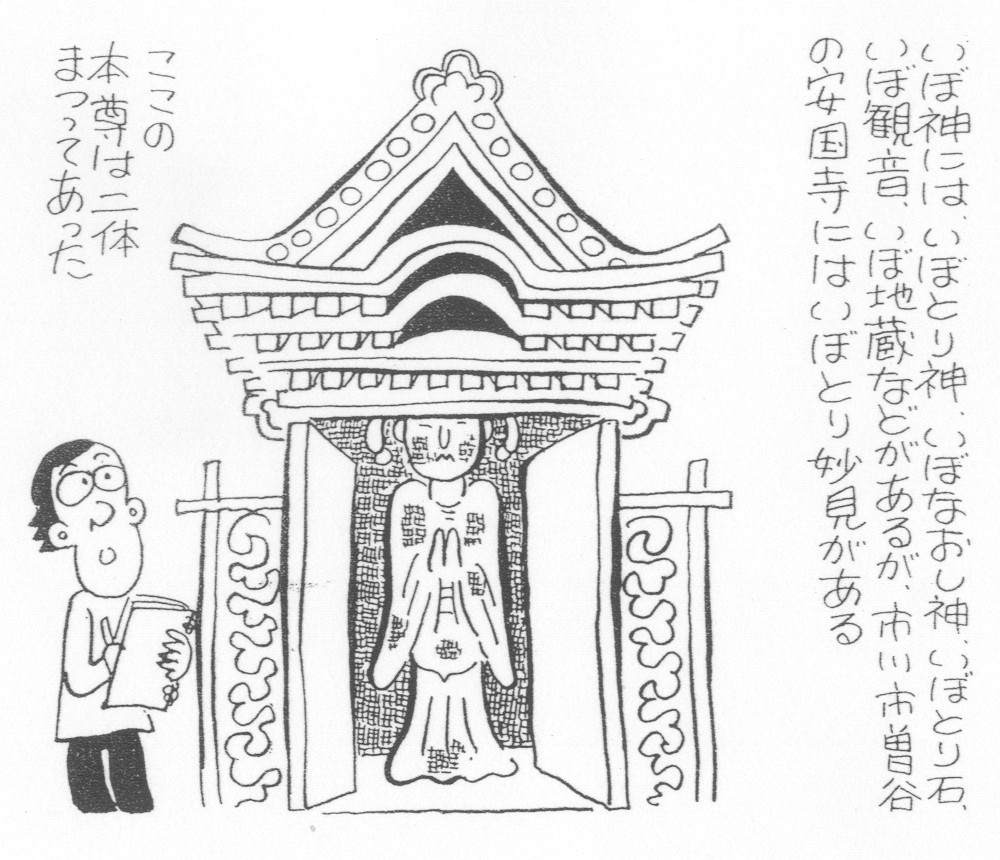 いぼ神には、いぼとり神、いぼなおし神、いぼとり石、
いぼ観音、いぼ地蔵などがあるが、市川市曽谷
の安国寺にはいぼとり妙見がある
ここの
本尊は二体
まつってあった